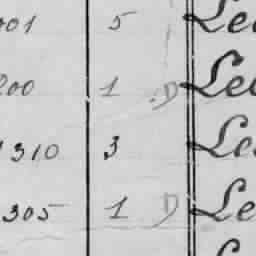 001 5 Le
200 1 D Le
310 3 Le
305 1 D Le